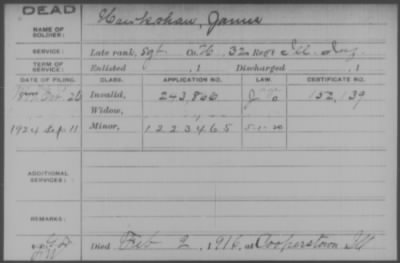 DEAD
NAME OF SOLDIER: Hawkshaw, James
SERVICE: Late rank, Sgt. Co. H, 32 Reg't Ill. Inf.
TERM OF SERVICE: Enlisted , 1 Discharged , 1
DATE OF FILING. CLASS. APPLICATION NO. LAW. CERTIFICATE NO.
1877 26 Invalid, 243,866 152,139
Widow,
1924 Sep. 11 Minor, 1223465 5-1-20
ADDITIONAL SERVICES:
REMARKS:
Died Feb 2, 1916, at Cooperstown Ill